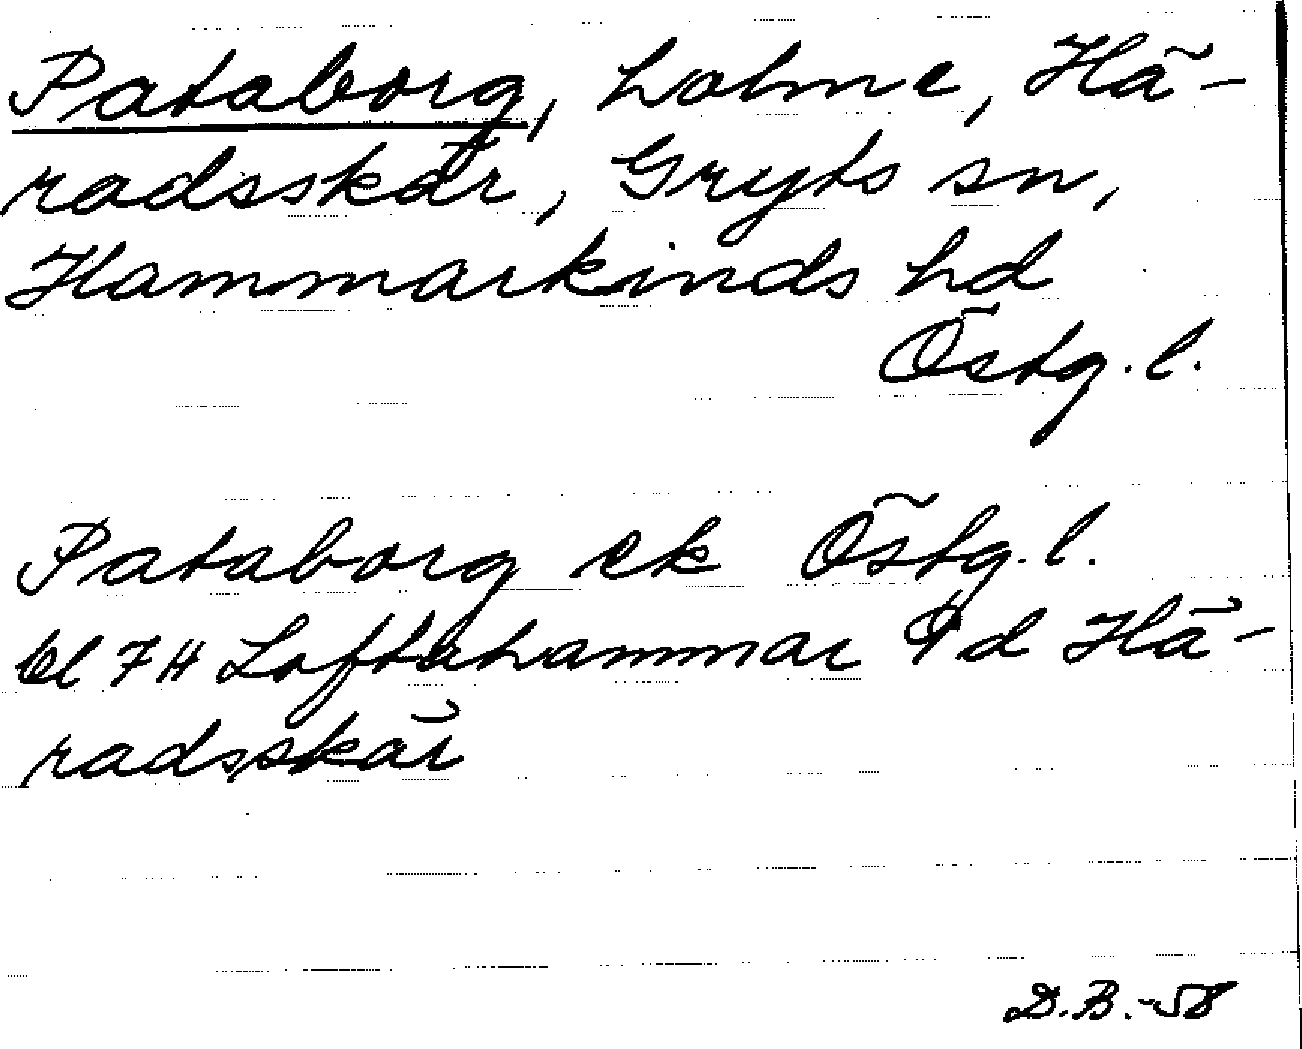 Pataborg, holme, Hä-
radsskär, Gryts sn,
Hammarkinds hd
Östg. l.
Pataborg ek Östg. l.
bl 7H Loftahammar Id Hä-
radsskär
D.B.-58